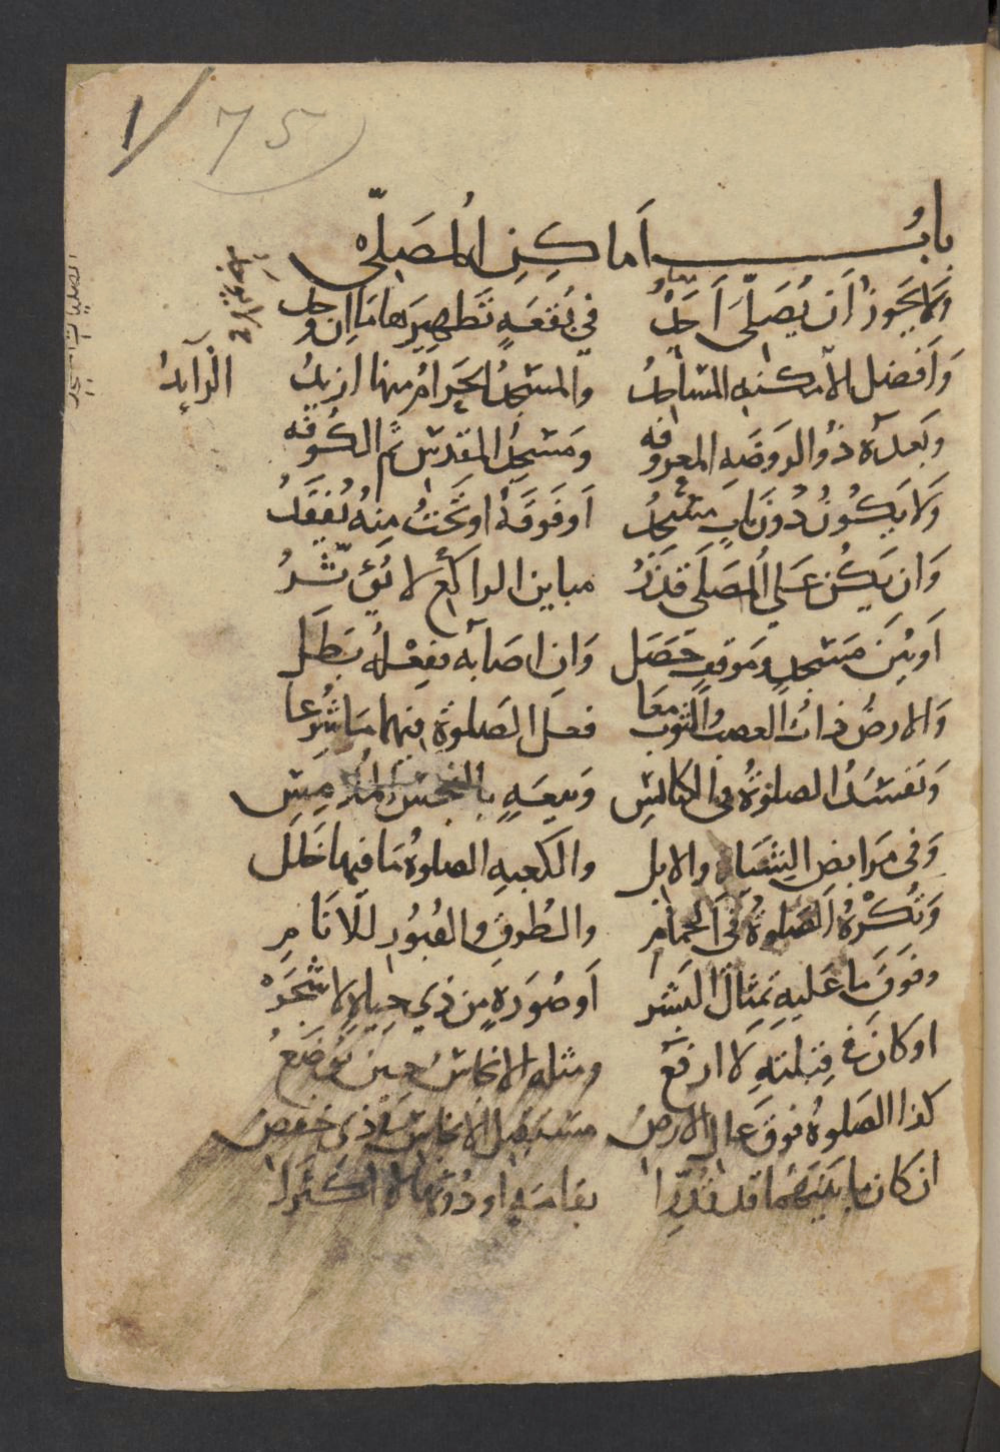 75 1/
باب أماكن المصلى
ولا يجوز أن يصلي أحد في بقعة تطهيرها ما إن وجد
وأفضل الأمكنة المساجد والمسجد الحرام منها ازيد الزايد
وبعده ذو الروضة المعروفه ومسجد المقدس ثم الكوفه
ولا يكون دون باب مسجد أو فوقه أو تحت منه يفقد
وان يكن على المصلى قذر مباين الراكع لا يؤثر
أو بين مسجد وموقف حصل وان اصابه بفعله بطل
والارض ذات العصب والثوب معا فعل الصلوة فيهما ما شرعا
وتفسد الصلوة في الكنائس وبيعة بالنجس
وفي مرابض الشياه والابل والكعبه الصلوة ما فيها خلل
وتكره الصلوة في الحمام والطرق والقبور للانام
وفوق ما عليه تمثال البشر أو صورة من ذي حياة لا شجره
او كان في قبلته لا ارفع ومثله الانجاس حين توضع
كذا الصلوة فوق عالي الارض مستقبل الانجاس خفض
ان كان ما بينهما قد قدرا بقامة او دونها لا اكثرا